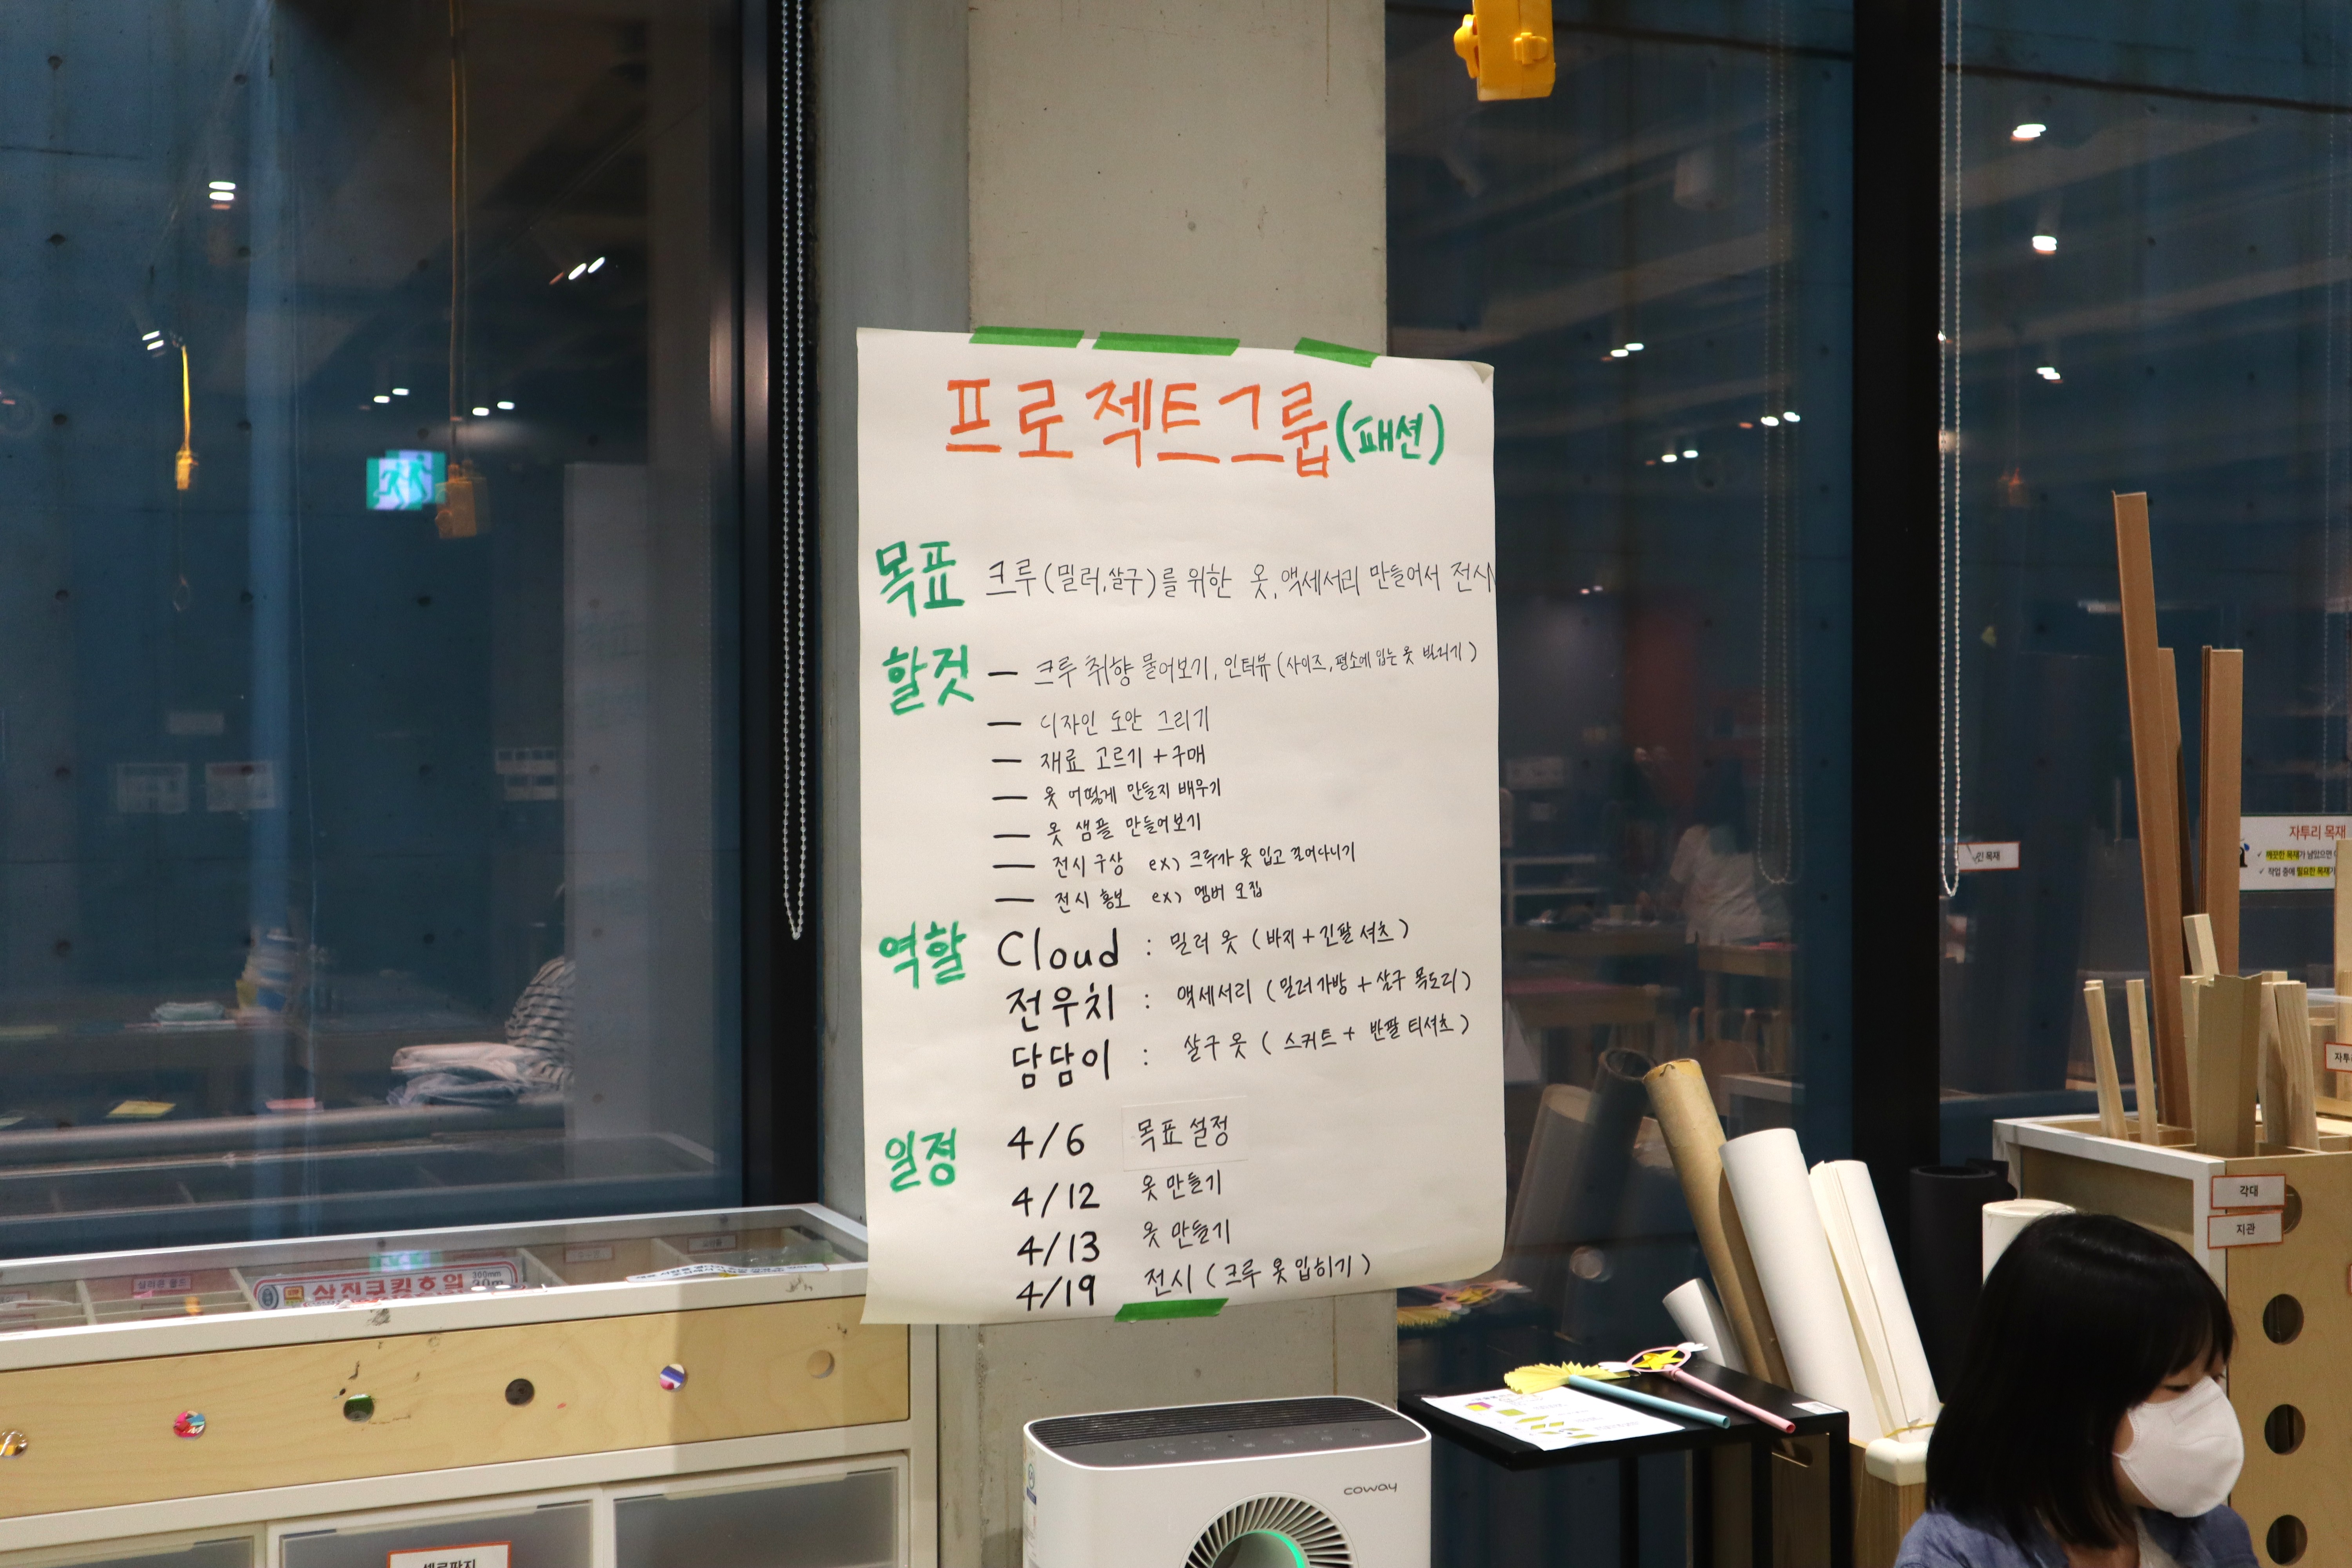 프로젝트그룹(패션)
목표 크루(밀러,살구)를 위한 옷,액세서리 만들어서 전시
할것 — 크루 취향 물어보기, 인터뷰(사이즈, 평소에 입는 옷 빌리기)
— 디자인 도안 그리기
— 재료 고르기 + 구매
— 옷 어떻게 만들지 배우기
— 옷 샘플 만들어보기
— 전시 구상 ex) 크루가 옷 입고 걸어다니기
— 전시 홍보 ex) 멤버 모집
역할 Cloud : 밀러 옷 (바지+긴팔 셔츠)
전우치 : 액세서리 (밀러가방 + 살구 목도리)
담담이 : 살구 옷 ( 스커트 + 반팔 티셔츠)
일정 4/6 목표 설정
4/12 옷 만들기
4/13 옷 만들기
4/19 전시 (크루 옷 입히기)
자투리 목재
깨끗한 목재가 남았으면
작업 중에 필요한 목재가
인 목재
각대
지관
300mm
30m
coway